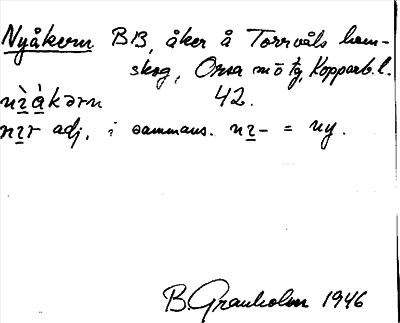 Nyåkern BB, åker å Torrvåls hem-
skog, Orsa sn o tg, Kopparb. l.
nɪ̀ák̀ərn 42.
nɪr adj, i sammans. nɪ- = ny.
B. Granholm 1946